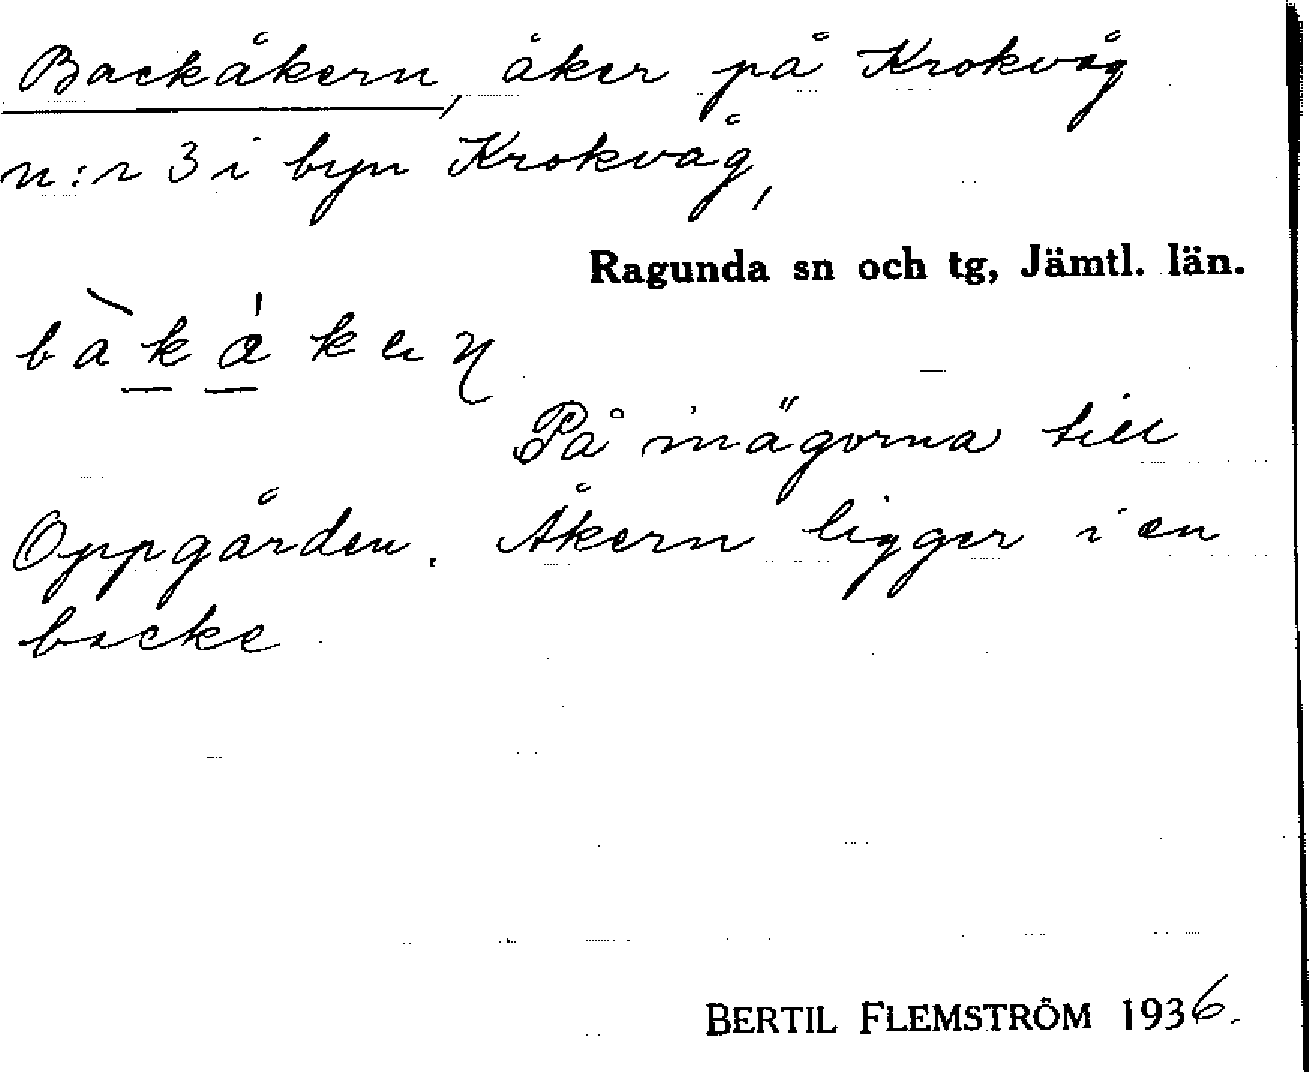 Backåkern, åker på Krokvåg
n:r 3 i byn Krokvåg,
Ragunda sn och tg, Jämtl. län.
På inägorna till
Oppgården. Åkern ligger i en
backe
BERTIL FLEMSTRÖM 1936.